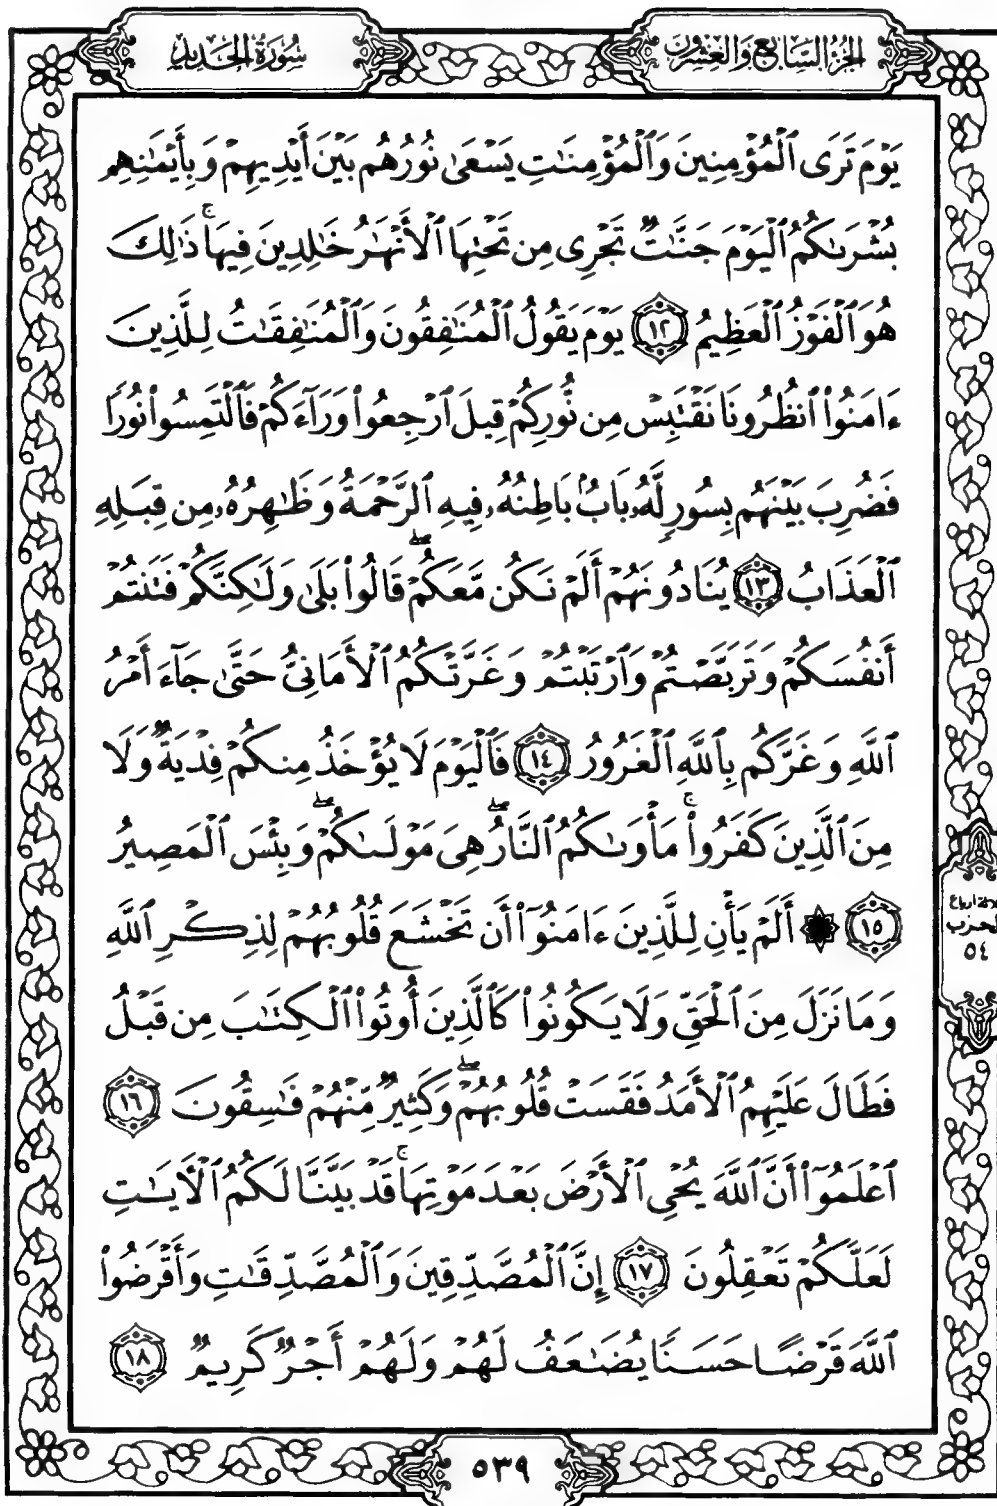 الجزء السابع والعشرون
سورة الحديد
يَوْمَ تَرَى ٱلْمُؤْمِنِينَ وَٱلْمُؤْمِنَٰتِ يَسْعَىٰ نُورُهُم بَيْنَ أَيْدِيهِمْ وَبِأَيْمَٰنِهِم
بُشْرَىٰكُمُ ٱلْيَوْمَ جَنَّٰتٌ تَجْرِى مِن تَحْتِهَا ٱلْأَنْهَٰرُ خَٰلِدِينَ فِيهَا ۚ ذَٰلِكَ
هُوَ ٱلْفَوْزُ ٱلْعَظِيمُ ١٢ يَوْمَ يَقُولُ ٱلْمُنَٰفِقُونَ وَٱلْمُنَٰفِقَٰتُ لِلَّذِينَ
ءَامَنُوا۟ ٱنظُرُونَا نَقْتَبِسْ مِن نُّورِكُمْ قِيلَ ٱرْجِعُوا۟ وَرَآءَكُمْ فَٱلْتَمِسُوا۟ نُورًا
فَضُرِبَ بَيْنَهُم بِسُورٍ لَّهُۥ بَابٌۢ بَاطِنُهُۥ فِيهِ ٱلرَّحْمَةُ وَظَٰهِرُهُۥ مِن قِبَلِهِ
ٱلْعَذَابُ ١٣ يُنَادُونَهُمْ أَلَمْ نَكُن مَّعَكُمْ ۖ قَالُوا۟ بَلَىٰ وَلَٰكِنَّكُمْ فَتَنتُمْ
أَنفُسَكُمْ وَتَرَبَّصْتُمْ وَٱرْتَبْتُمْ وَغَرَّتْكُمُ ٱلْأَمَانِىُّ حَتَّىٰ جَآءَ أَمْرُ
ٱللَّهِ وَغَرَّكُم بِٱللَّهِ ٱلْغَرُورُ ١٤ فَٱلْيَوْمَ لَا يُؤْخَذُ مِنكُمْ فِدْيَةٌ وَلَا
مِنَ ٱلَّذِينَ كَفَرُوا۟ ۚ مَأْوَىٰكُمُ ٱلنَّارُ ۖ هِىَ مَوْلَىٰكُمْ ۖ وَبِئْسَ ٱلْمَصِيرُ
١٥ ۞ أَلَمْ يَأْنِ لِلَّذِينَ ءَامَنُوٓا۟ أَن تَخْشَعَ قُلُوبُهُمْ لِذِكْرِ ٱللَّهِ
وَمَا نَزَلَ مِنَ ٱلْحَقِّ وَلَا يَكُونُوا۟ كَٱلَّذِينَ أُوتُوا۟ ٱلْكِتَٰبَ مِن قَبْلُ
فَطَالَ عَلَيْهِمُ ٱلْأَمَدُ فَقَسَتْ قُلُوبُهُمْ ۖ وَكَثِيرٌ مِّنْهُمْ فَٰسِقُونَ ١٦
ٱعْلَمُوٓا۟ أَنَّ ٱللَّهَ يُحْىِ ٱلْأَرْضَ بَعْدَ مَوْتِهَا ۚ قَدْ بَيَّنَّا لَكُمُ ٱلْءَايَٰتِ
لَعَلَّكُمْ تَعْقِلُونَ ١٧ إِنَّ ٱلْمُصَّدِّقِينَ وَٱلْمُصَّدِّقَٰتِ وَأَقْرَضُوا۟
ٱللَّهَ قَرْضًا حَسَنًا يُضَٰعَفُ لَهُمْ وَلَهُمْ أَجْرٌ كَرِيمٌ ١٨
أرباع
الحزب
٥٤
٥٣٩